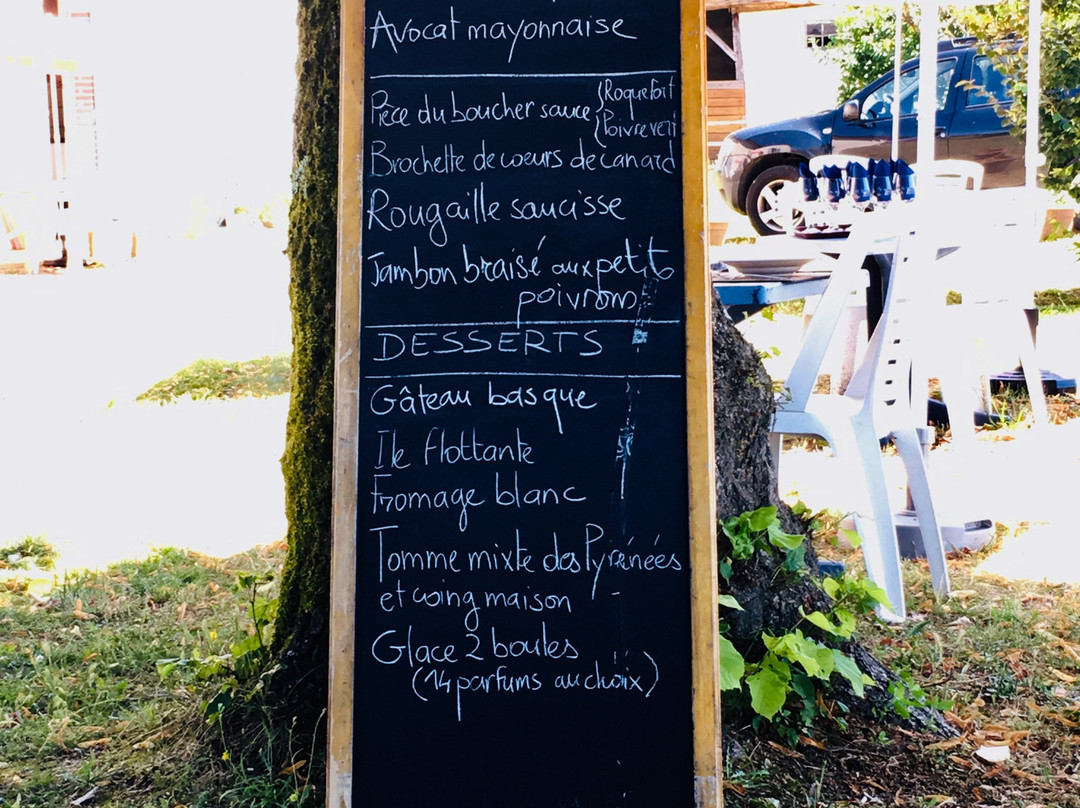 Avocat mayonnaise
Pièce du boucher sauce { Roquefort
{ Poivre vert
Brochette de coeurs de canard
Rougaille saucisse
Jambon braisé aux petits
poivrons
DESSERTS
Gâteau basque
Ile flottante
Fromage blanc
Tomme mixte des Pyrénées
et coing maison
Glace 2 boules
(14 parfums au choix)